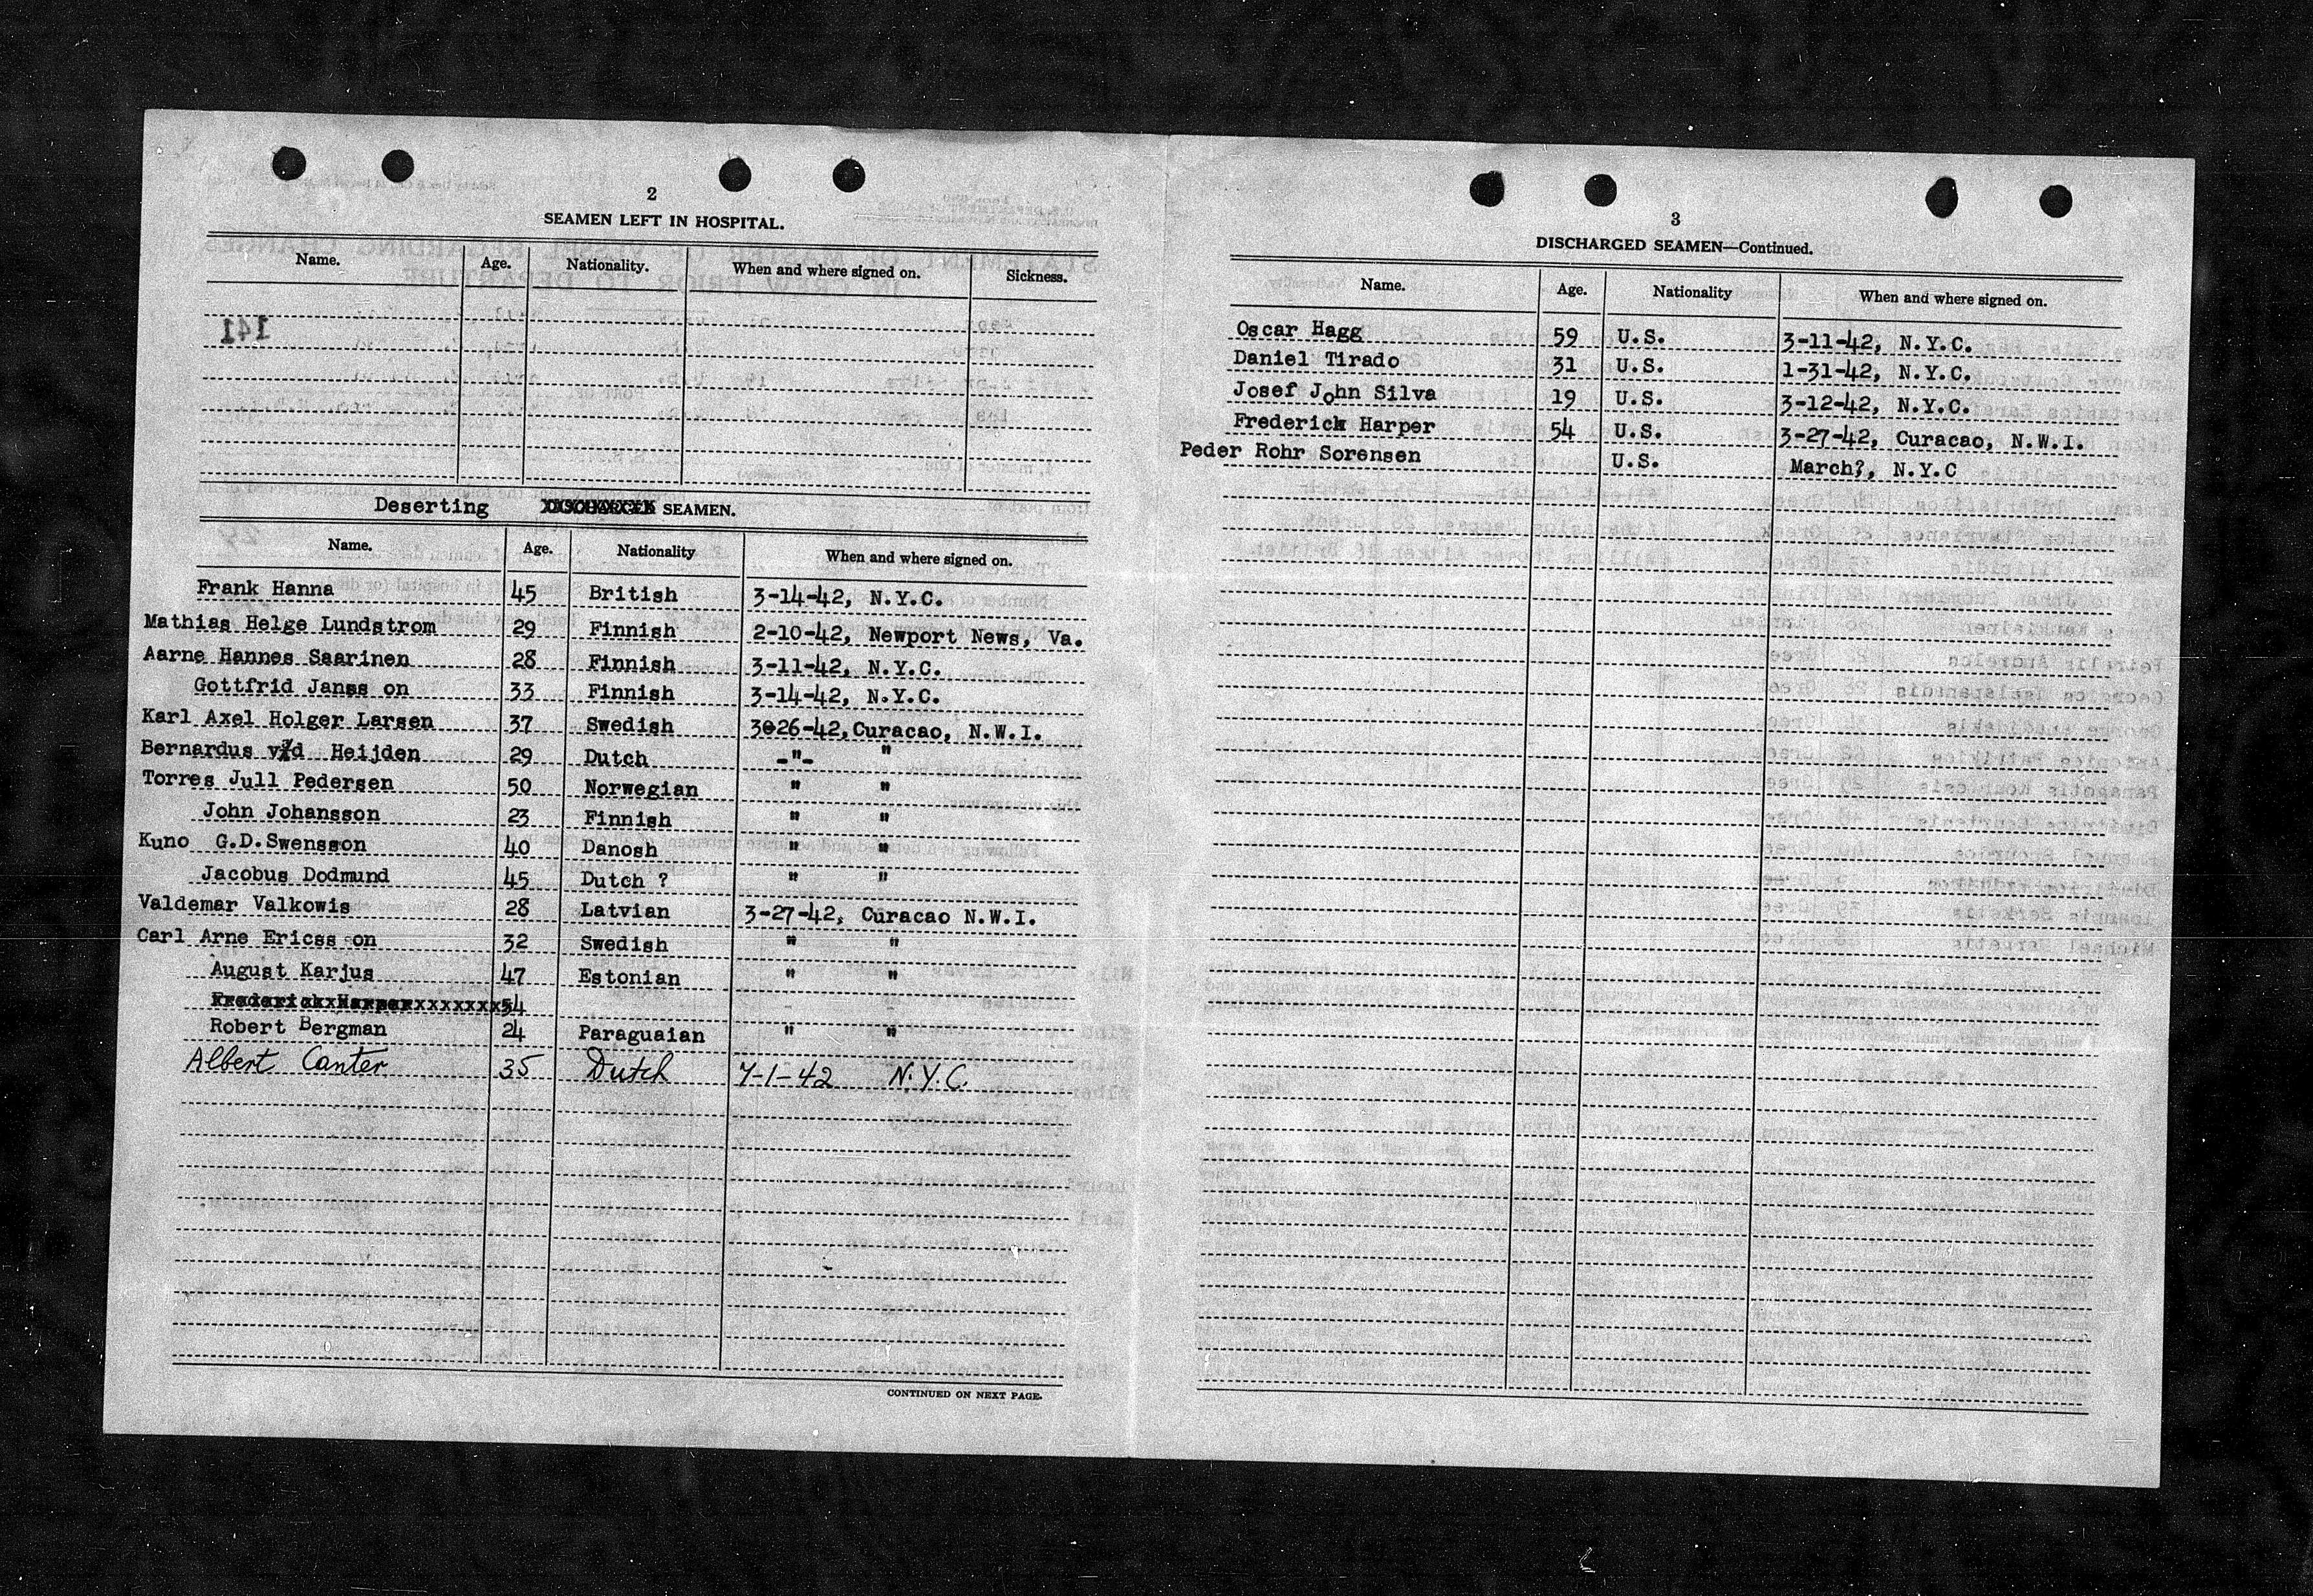 2
SEAMEN LEFT IN HOSPITAL.
Name. Age. Nationality. When and where signed on. Sickness.
141
Deserting DISCHARGED SEAMEN.
Name. Age. Nationality When and where signed on.
Frank Hanna 45 British 3-14-42, N.Y.C.
Mathias Helge Lundstrom 29 Finnish 2-10-42, Newport News, Va.
Aarne Hannes Saarinen 28 Finnish 3-11-42, N.Y.C.
Gottfrid Janss on 33 Finnish 3-14-42, N.Y.C.
Karl Axel Holger Larsen 37 Swedish 3026-42,Curacao, N.W.I.
Bernardus v/d Heijden 29 Dutch -"- "
Torres Jull Pedersen 50 Norwegian " "
John Johansson 23 Finnish " "
Kuno G.D.Swensson 40 Danosh " "
Jacobus Dodmund 45 Dutch ? " "
Valdemar Valkowis 28 Latvian 3-27-42, Curacao N.W.I.
Carl Arne Ericss on 32 Swedish " "
August Karjus 47 Estonian " "
Frederick Harper 54
Robert Bergman 24 Paraguaian " "
Albert Canter 35 Dutch 4-1-42 N.Y.C.
CONTINUED ON NEXT PAGE.
3
DISCHARGED SEAMEN—Continued.
Name. Age. Nationality When and where signed on.
Oscar Hagg 59 U.S. 3-11-42, N.Y.C.
Daniel Tirado 31 U.S. 1-31-42, N.Y.C.
Josef John Silva 19 U.S. 3-12-42, N.Y.C.
Frederick Harper 54 U.S. 3-27-42, Curacao, N.W.I.
Peder Rohr Sorensen U.S. March?, N.Y.C